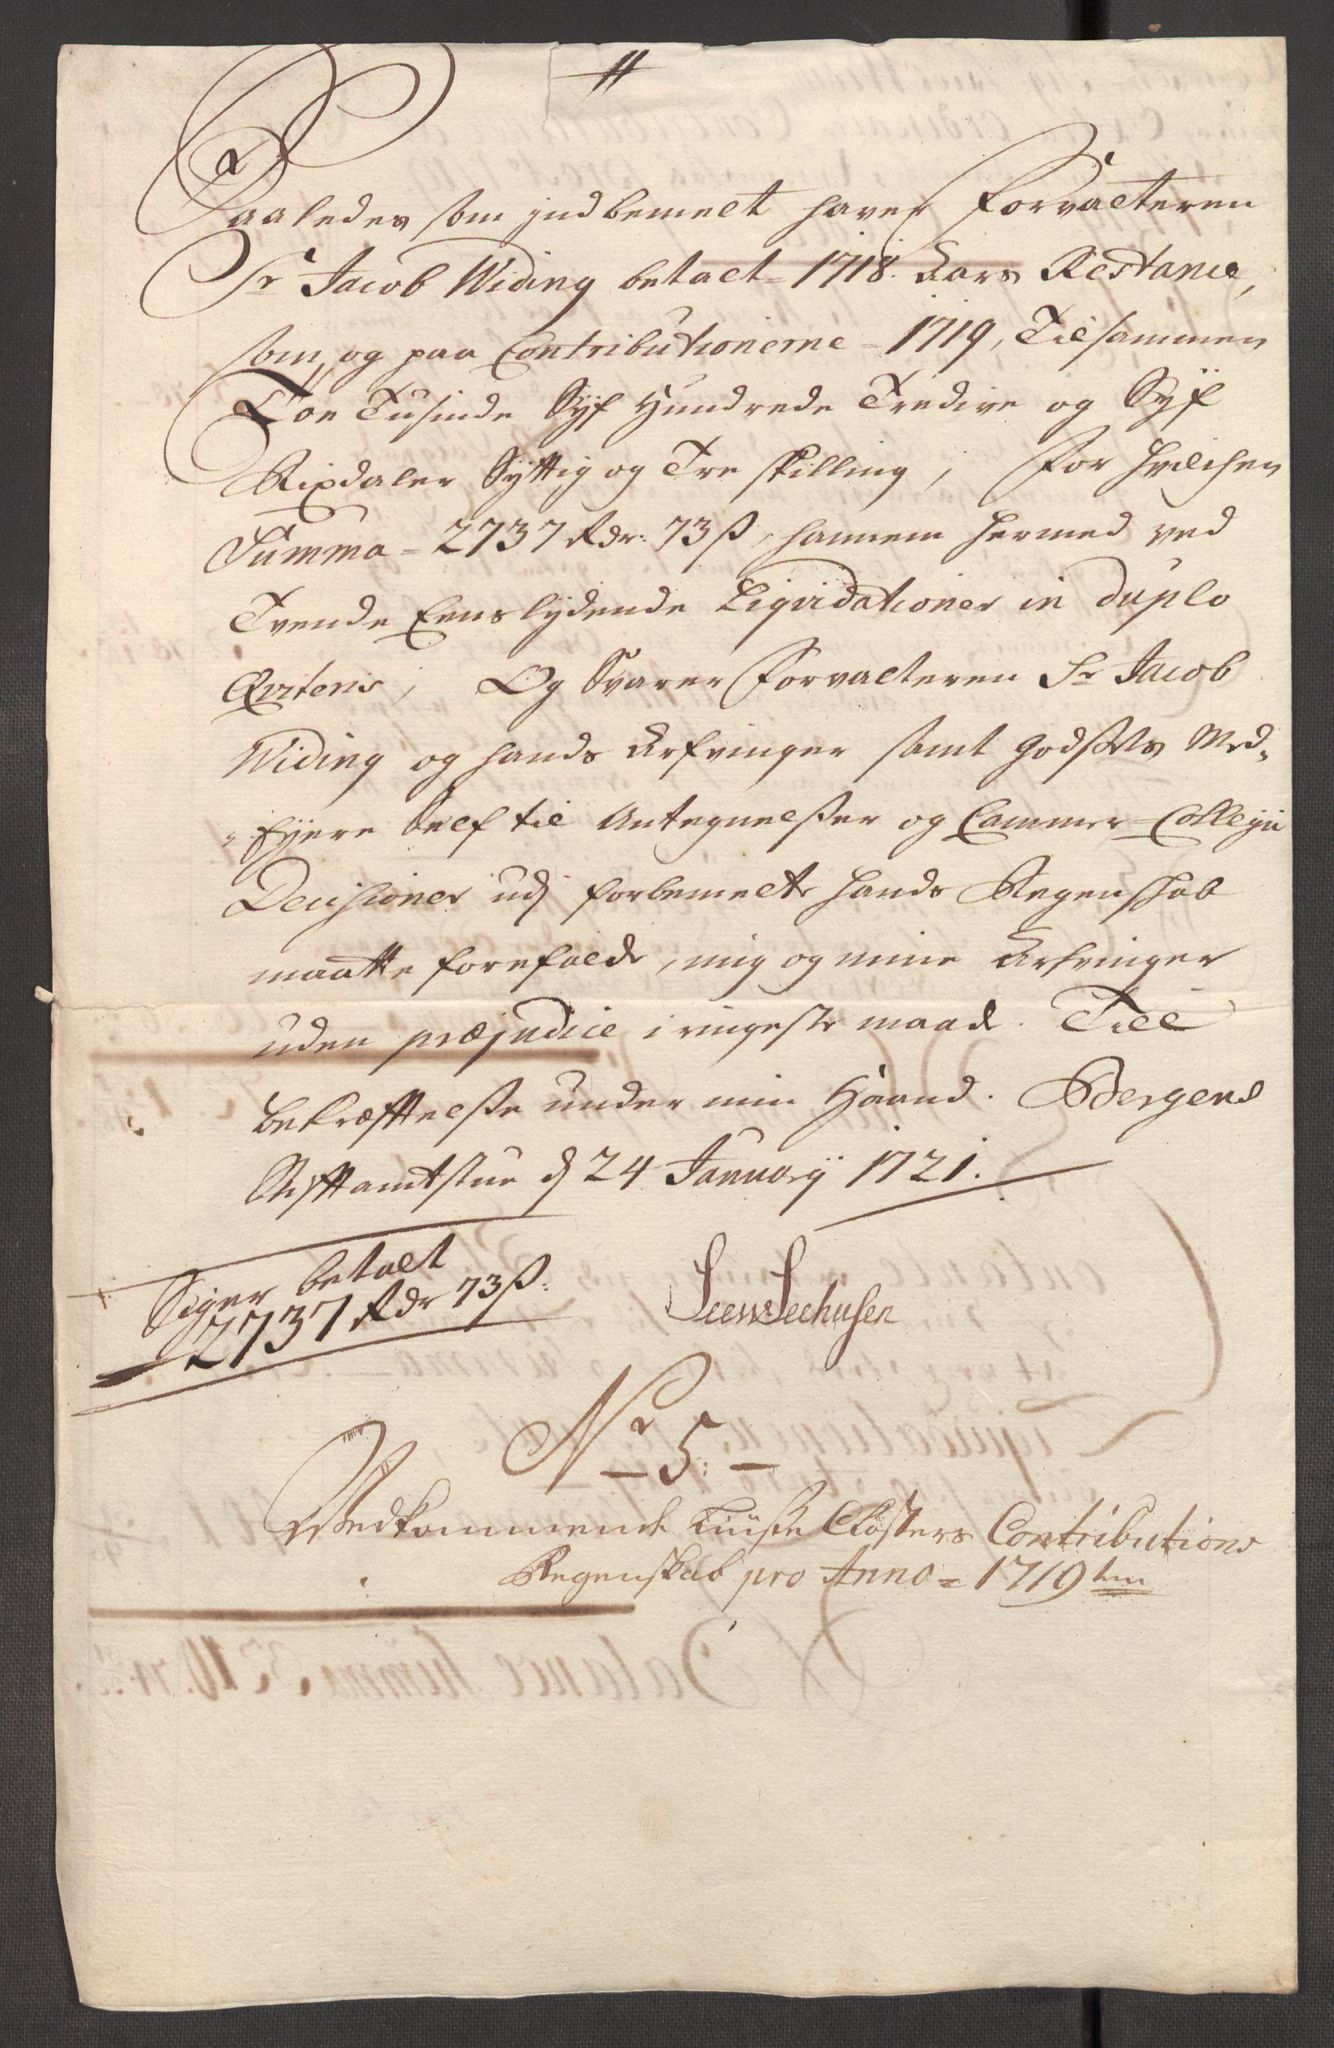 Saaledes som indbemelt haver Forvalteren
Sr Jacob Widing betalt 1718 Aars Restance,
som og paa Contributionerne 1719, Tilsammen
Toe Tusinde Syf Hundrede Tredive og Syf
Rixdaler Syttig og Tre skilling, For hvilchen
Summa 2737 Rdr: 73 ß, hannem hermed ved
Tvende Eenslydende Liqvidationer in duplo
Qviteris, Og Svarer Forvalteren Sr Jacob
Widing og hands Arfvinger samt Godsets Med-
Eyere Self til Antegnelßer og Cammer-Collegii
Decisioner udj forbemelte hands Regenschab
maatte forefalde, mig og mine Arfvinger
uden præjudice i ringeste maade. Till
bekræfftelße under min Haand. Bergens
Stifftamtstue d 24 Januarij 1721.
Siger betalt
2737 Rdr 73 ß.
Seehusen
Nr 5:
Vedkommende Liuße Closters Contributions
Regenskab pro Anno 1719